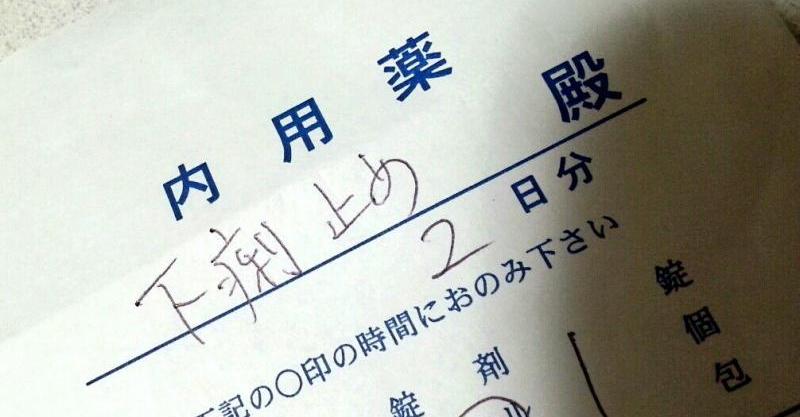 内用薬
下痢止め 殿
2日分
下記の〇印の時間におのみ下さい
錠剤 錠
個
包